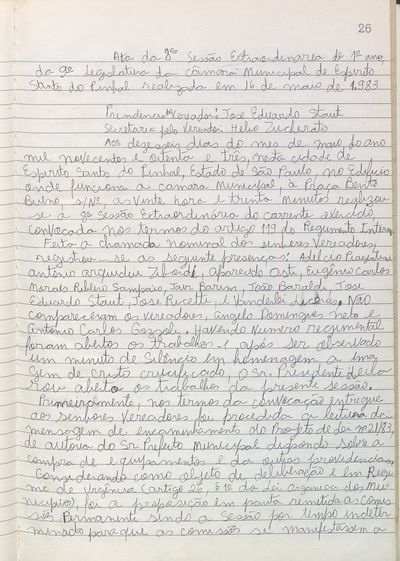 26
Ata da 8ª Sessão Extraordinarea do 1º ano,
da 9ª Legislatura da câmara Municipal de Espirito
Santo do Pinhal realizada em 16 de maio de 1.983
Presidencia Vereador: Jose Eduardo Staut
Secretaria pelo Vereador: Helio Zucherato
Aos dezesseis dias do mes de maio, do ano
mil novecentos e oitenta e três, nesta cidade de
Espirito Santo do Pinhal, Estado de São Paulo, no Edificio
onde funciona a camara Municipal, à Praça Bento
Bueno, s/nº, as vinte hora e trinta Minutos realizou
se a 8ª Sessão Extraordinária do corrente exercicio,
convocada nos termos do artigo 119 do Regimento Interno
Feita a chamada nominal dos senhores Vereadores,
registrou-se as seguinte presenças: Adelcio
antônio Aparecido Osti, Eugênio Carlos
Moraes Ribeiro Sampaio, Jair Borim, João Baraldi, Jose
Eduardo Staut, Jose Pucetti, e Vanderlei Não
compareceram os vereadores, Angelo Domingues neto e
Antonio Carlos Gozzoli. Havendo Numero regimental
foram abertos os trabalhos e após ser observado
um minuto de Silêncio em homenagem a ima
gem de Cristo crucificado, O Sr. Presidente decla
rou aberto os trabalhos da presente sessão.
Primeiramente, nos termos da convocação entregue
aos senhores Vereadores, foi procedida a leitura da
mensagem de encaminhamento do Projeto de Lei nº 21/83,
de autoria do Sr Prefeito Municipal dispondo sobre a
compra de equipamentos e da outras providencias.
Considerando como objeto de deliberação e em Regi
me de Urgência (artigo 26, § 1º da Lei Organica dos Mu
nicipios), foi a proposição em pauta remetida as Comis
sões Permanente sendo a Sessão por tempo indeter
minado para que as comissões se manifestassem a